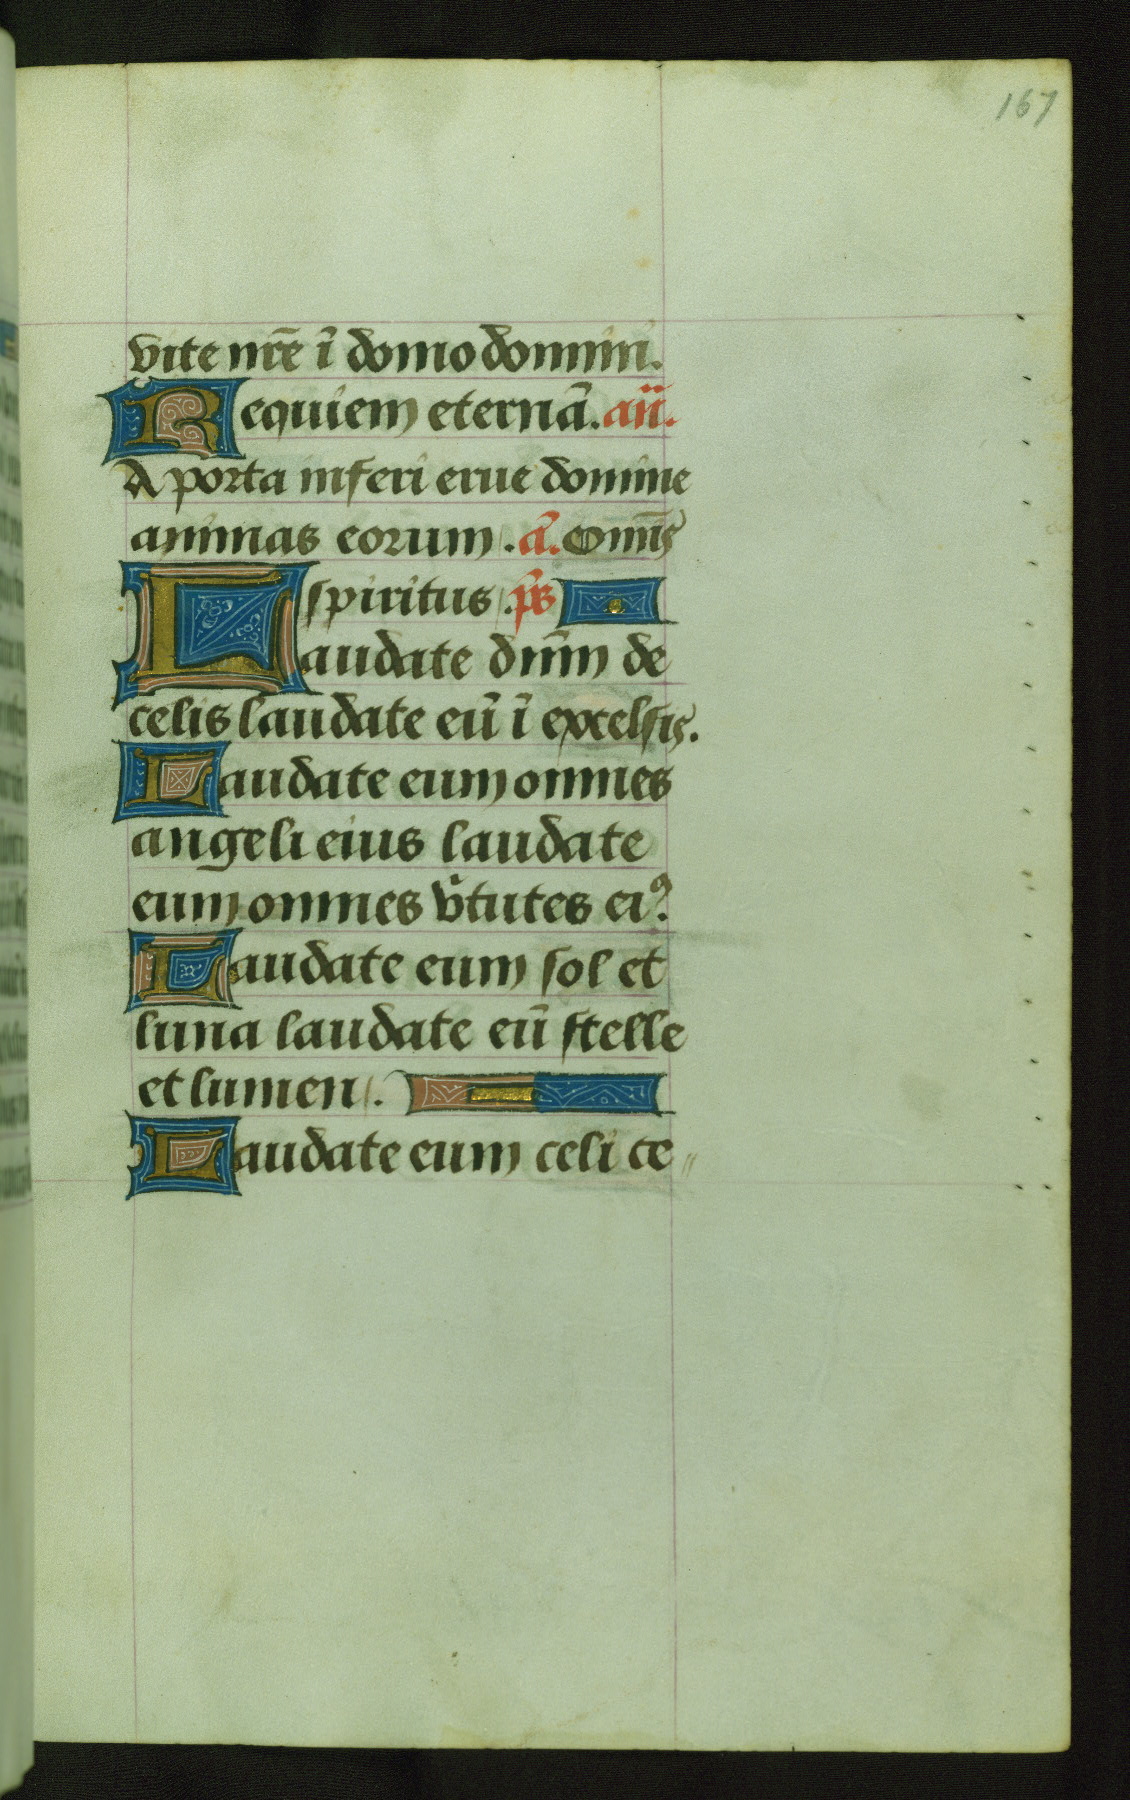 167
vite nr̄e ī domo domini.
Requiem eternā. añ.
A porta inferi erue domine
animas eorum. ā. Omīs
spiritus. p̄s
Laudate dn̄m de
celis laudate eū ī excelsis.
Laudate eum omnes
angeli eius laudate
eum omnes v̄tutes eiꝰ.
Laudate eum sol et
luna laudate eū stelle
et lumen.
Laudate eum celi ce〃